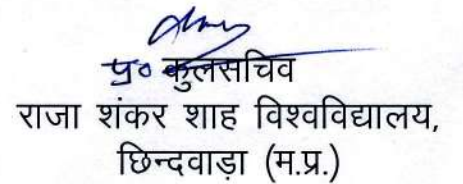 प्र० कुलसचिव
राजा शंकर शाह विश्वविद्यालय,
छिन्दवाड़ा (म.प्र.)